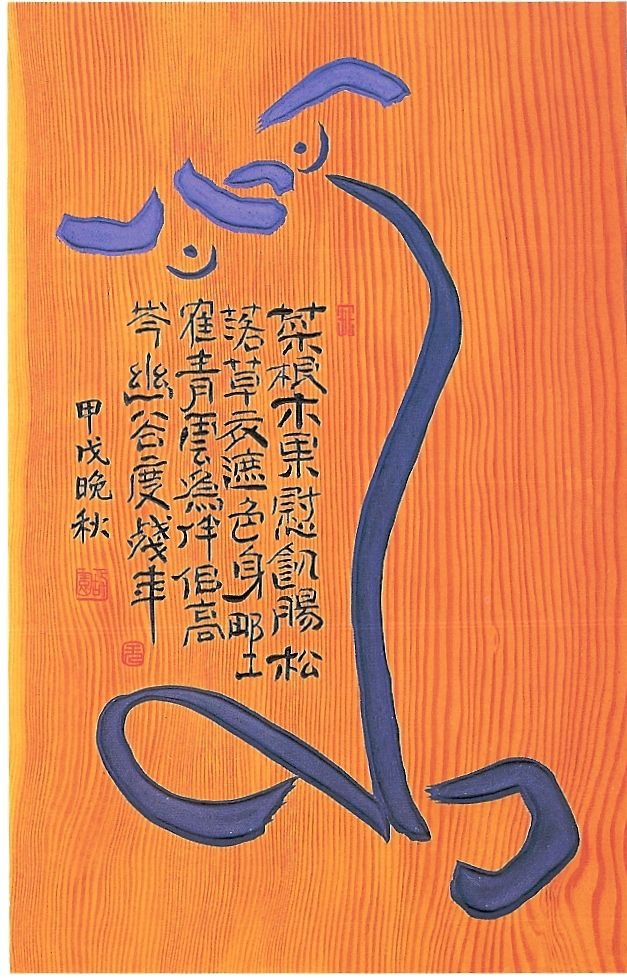 菜根木果慰飢腸松
落草衣遮色身野
寉青雲爲伴侶高
岑幽谷度殘年
甲戌晚秋